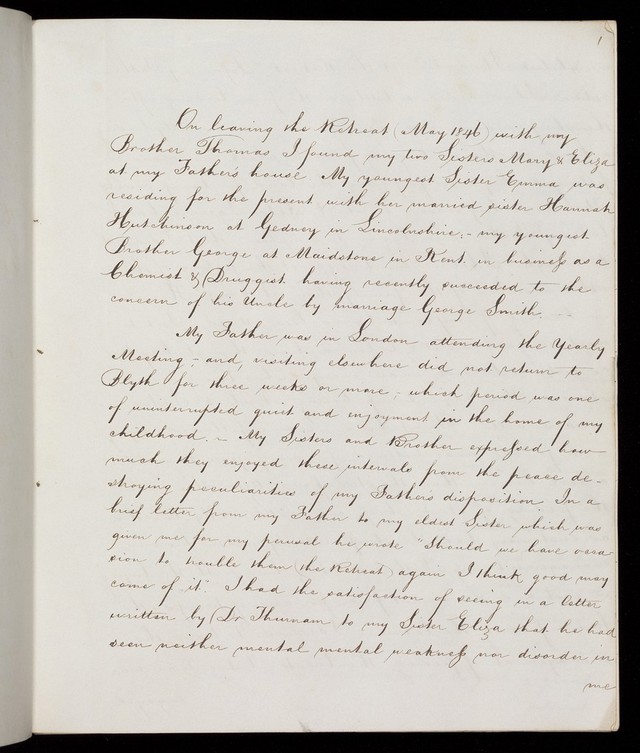 1
On leaving the Retreat (May 1846) with my
Brother Thomas I found my two Sisters Mary & Eliza
at my Father's house. My youngest Sister Emma was
residing for the present with her married sister Hannah
Hutchinson at Gedney in Lincolnshire; - my youngest
Brother George at Maidstone in Kent in business as a
Chemist & Druggist having recently succeeded to the
concern of his Uncle by marriage George Smith. --
My Father was in London attending the Yearly
Meeting, - and, visiting elsewhere did not return to
Blyth for three weeks or more; which period was one
of uninterrupted quiet and enjoyment in the home of my
childhood. - My Sisters and Brother expressed how
much they enjoyed these intervals from the peace de-
stroying peculiarities of my Fathers disposition In a
brief letter from my Father to my eldest Sister which was
given me for my perusal he wrote "Should we have occa
sion to trouble them (the Retreat) again I think good may
come of it". I had the satisfaction of seeing in a letter
written by Dr Thurnam to my Sister Eliza that he had
seen neither mental mental weakness nor disorder in
me